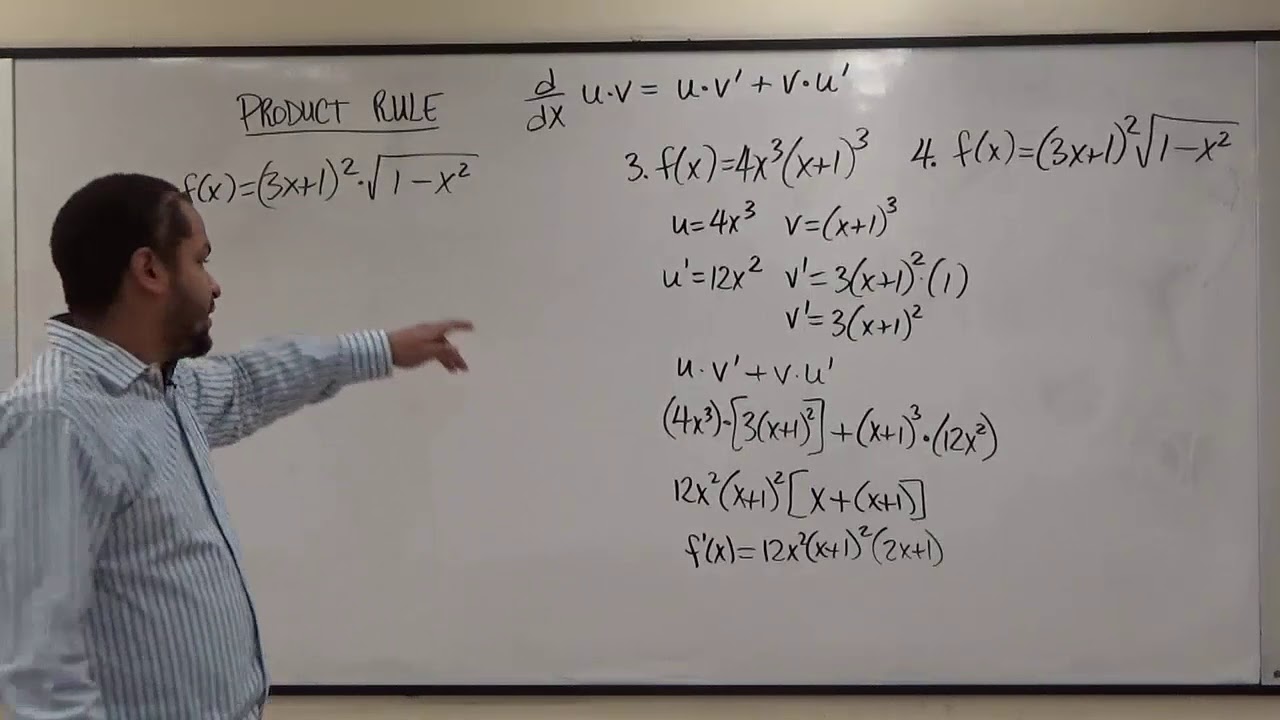 PRODUCT RULE
d/dx u·v = u·v' + v·u'
f(x)=(3x+1)²·√(1-x²)
3. f(x)=4x³(x+1)³
u=4x³ v=(x+1)³
u'=12x² v'=3(x+1)²·(1)
v'=3(x+1)²
u·v'+v·u'
(4x³)·[3(x+1)²]+(x+1)³·(12x²)
12x²(x+1)²[x+(x+1)]
f'(x)=12x²(x+1)²(2x+1)
4. f(x)=(3x+1)²√(1-x²)